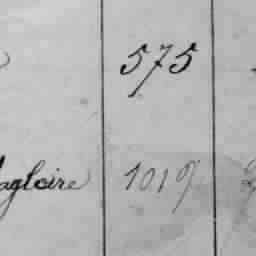 575
agloire 1019